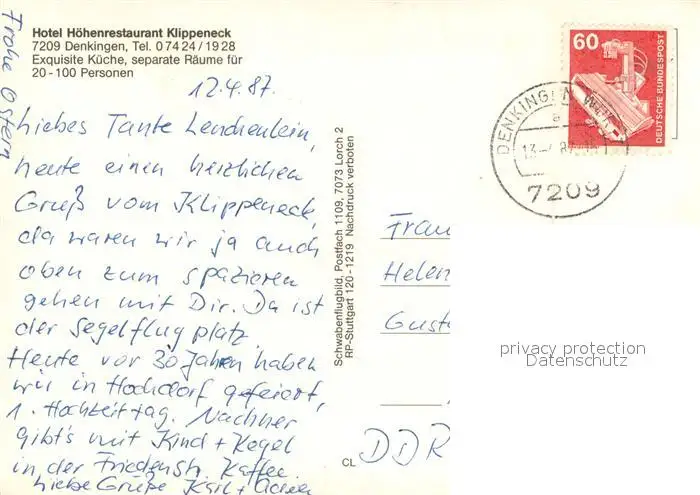 Frohe Ostern
Hotel Höhenrestaurant Klippeneck
7209 Denkingen, Tel. 0 74 24 / 19 28
Exquisite Küche, separate Räume für
20 - 100 Personen
12.4.87.
Liebes Tante Lenchenlein,
heute einen herzlichen
Gruß vom Klippeneck,
da waren wir ja auch
oben zum spazieren
gehen mit Dir. Da ist
der Segelflugplatz.
Heute vor 30 Jahren haben
wir in Hochdorf gefeiert,
1. Hochzeittag. Nachher
gibt's mit Kind + Kegel
in der Friedenstr. Kaffee.
Liebe Grüße Karl +
Schwabenflugbild, Postfach 1109, 7073 Lorch 2
RP-Stuttgart 120 - 1219 Nachdruck verboten
CL
60
DEUTSCHE BUNDESPOST
DENKINGEN
7209
Frau
Helen
Gust
DDR
privacy protection
Datenschutz